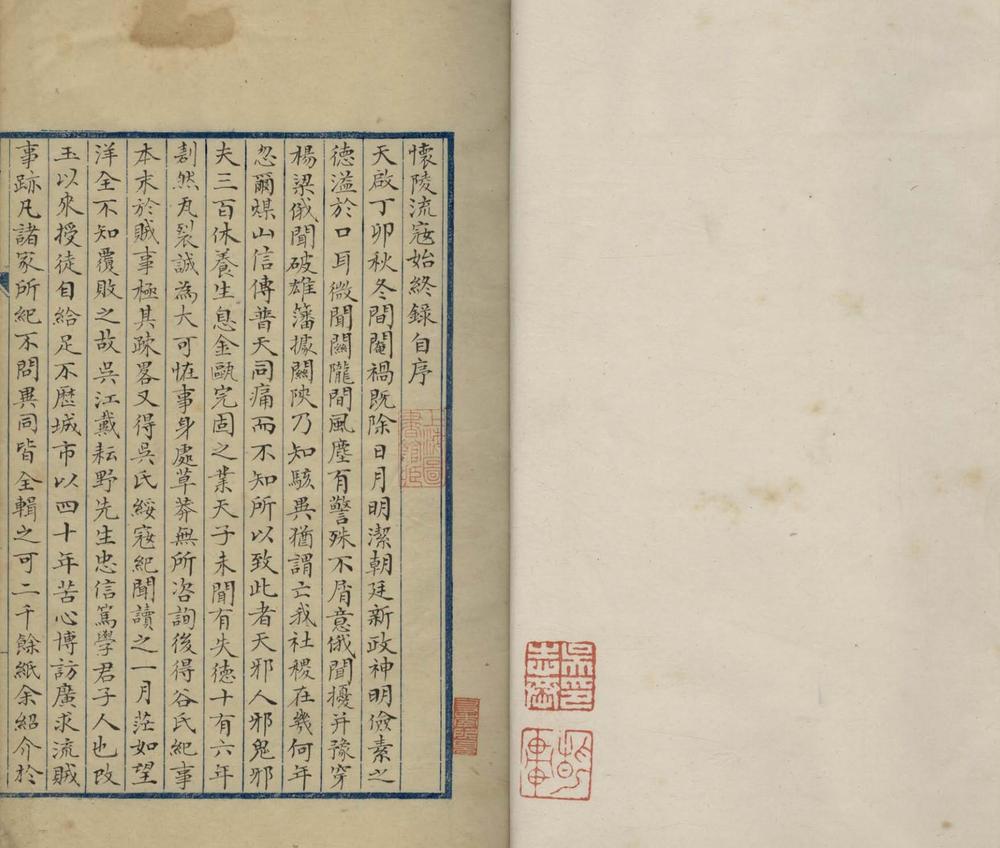 懷陵流寇始終錄自序
天啟丁卯秋冬間閹禍既除日月明潔朝廷新政神明儉素之
德溢於口耳微聞關隴間風塵有警殊不屑意俄聞擾并豫穿
楊梁俄聞破雄籓據關陝乃知駭異猶謂亡我社稷在幾何年
忽爾煤山信傳普天同痛而不知所以致此者天邪人邪鬼邪
夫三百休養生息金甌完固之業天子未聞有失德十有六年
劃然瓦裂誠為大可恠事身處草莽無所咨詢後得谷氏紀事
本末於賊事極其疎畧又得吳氏綏寇紀聞讀之一月茫如望
洋全不知覆敗之故吳江戴耘野先生忠信篤學君子人也改
玉以來授徒自給足不歷城市以四十年苦心博訪廣求流賊
事跡凡諸家所紀不問異同皆全輯之可二千餘紙余紹介於
上海圖書館藏